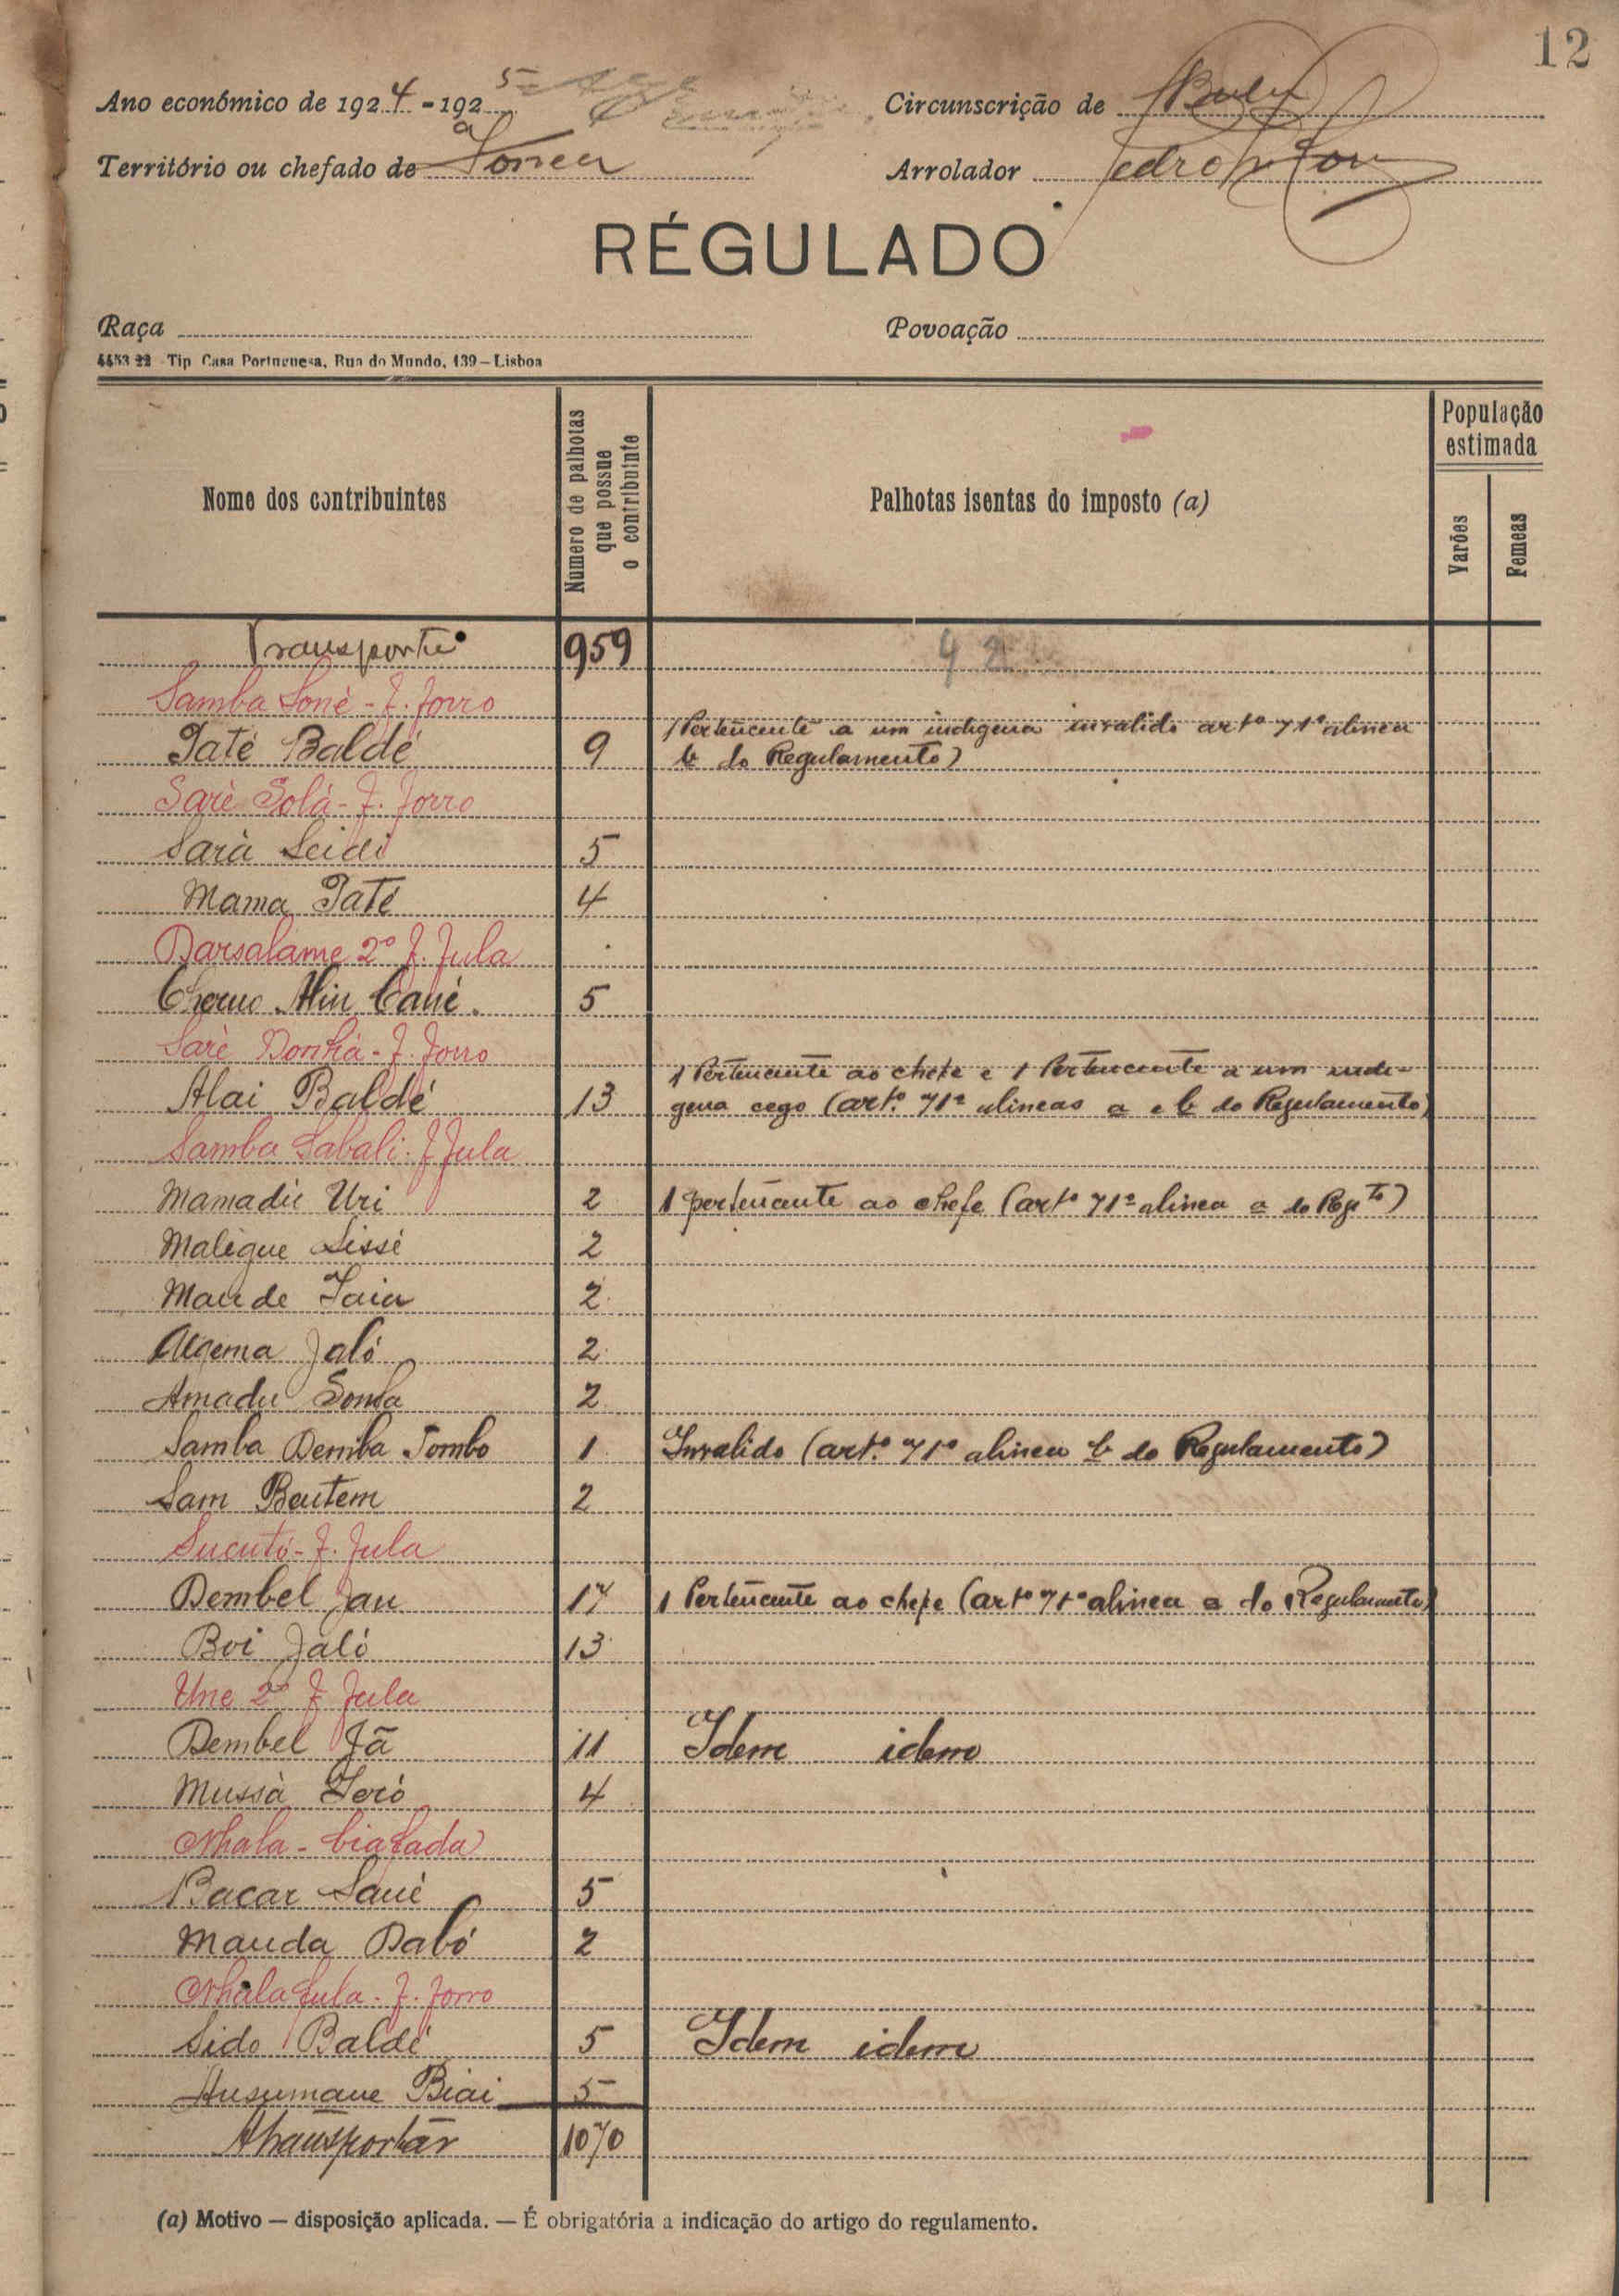 12
Ano económico de 1924 - 1925
Circunscrição de
Território ou chefado de
Arrolador Pedro
RÉGULADO
Raça
Povoação
4453 22 - Tip Casa Portuguesa, Rua do Mundo, 139 – Lisboa
Nome dos contribuintes
Numero de palhotas que possue o contribuinte
Palhotas isentas do imposto (a)
População estimada
Varões
Femeas
Transporte 959
42
Samba Soné - F. Forro
1 Pertencente a um indigena invalido artº 71º alinea
Paté Baldé 9 b do Regulamento)
Saré Solá - F. Forro
Sará Seidi 5
Mama Paté 4
Darsalame 2º F. Fula
Cherno Aliu Cané. 5
Saré Donhá - F. Forro
1 Pertencente ao chefe e 1 Pertencente a um indi-
Alai Baldé 13 gena cego (artº. 71º alineas a e b do Regulamento)
Samba Sabali. F Fula
Mamadú Uri 2 1 pertencente ao chefe (artº 71º alinea a do Regto)
Malique Sissé 2
Maude Jaia 2
Algema Jaló 2
Amadu Sonha 2
Samba Demba Tombo 1 Invalido (artº. 71º alinea b do Regulamento)
Sam Bentem 2
Sucutó - F. Fula
Dembel Jau 17 1 Pertencente ao chefe (artº 71º alinea a do Regulamento)
Boi Jaló 13
Une 2º F Fula
Dembel Jã 11 Idem idem
Mussá Seró 4
Nhala - biafada
Bacar Sané 5
Mauda Dabó 2
Nhala fula - F. Forro
Sido Baldé 5 Idem idem
Ausumane Biai 5
A transportar 1070
(a) Motivo — disposição aplicada. — É obrigatória a indicação do artigo do regulamento.